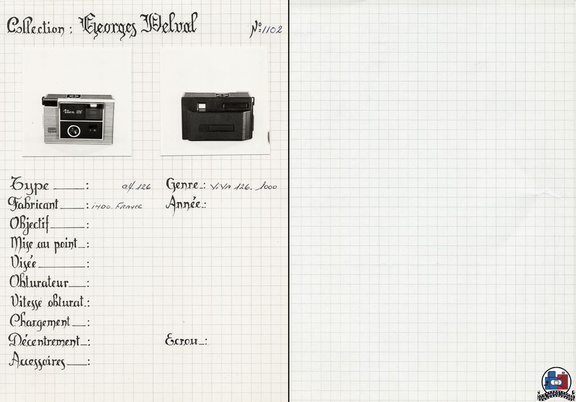 Collection : Georges Delval N°:1102
Type : 126 Genre : VIVA 126. 1000
Fabricant : INDO. FRANCE Année :
Objectif :
Mise au point :
Visée :
Obturateur :
Vitesse obturat. :
Chargement :
Décentrement : Ecrou :
Accessoires :